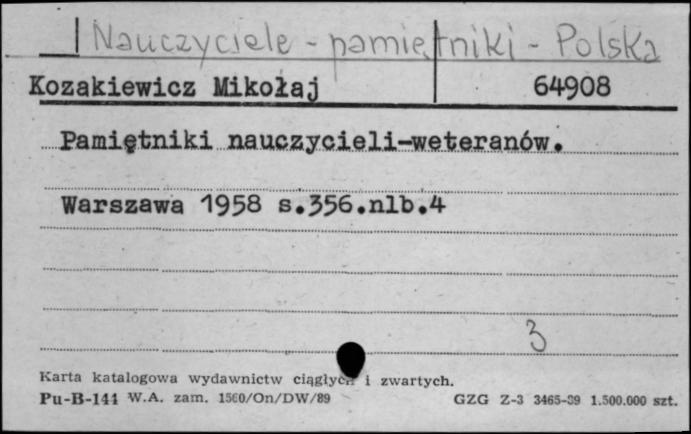 Nauczyciele - pamiętniki - Polska
Kozakiewicz Mikołaj 64908
Pamiętniki nauczycieli-weteranów.
Warszawa 1958 s.356.nlb.4
3
Karta katalogowa wydawnictw ciągłych i zwartych.
Pu-B-144 W.A. zam. 1560/On/DW/89 GZG Z-3 3465-89 1.500.000 szt.